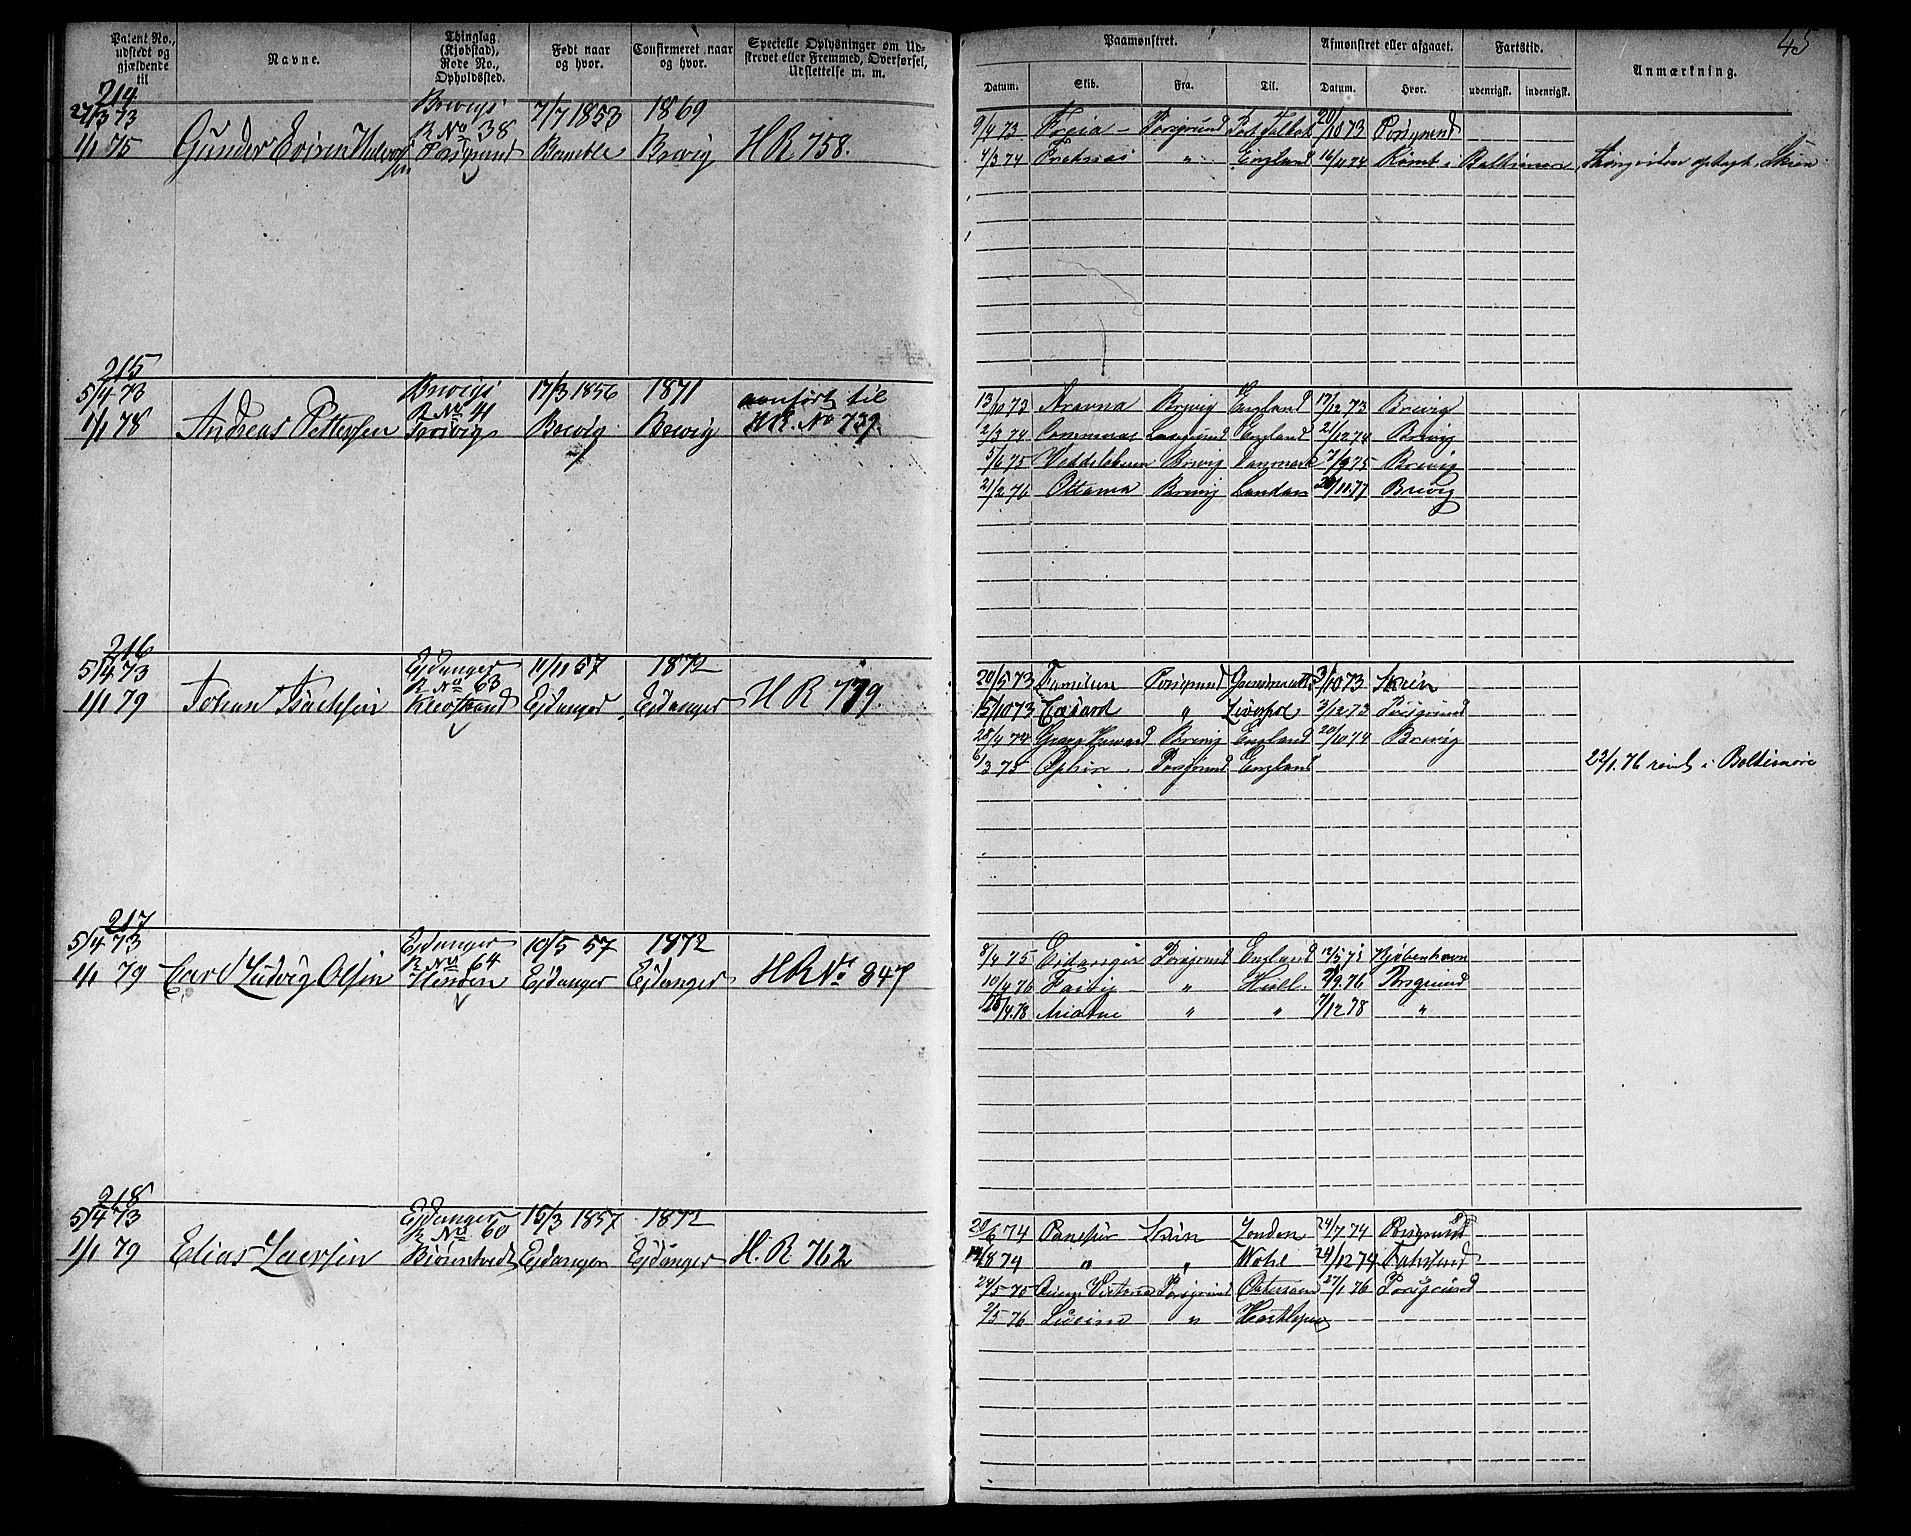 Patent No., udstedt og gjældende til
Navne.
Thinglag (Kjøbstad), Rode No., Opholdssted.
Født naar og hvor.
Confirmeret naar og hvor.
Specielle Oplysninger om Udskrevet eller Fremmed, Overførsel, Udslettelse m. m.
Paamønstret.
Afmønstret eller afgaaet.
Fartstid.
Anmærkning.
45
Datum. Skib. Fra. Til. Datum. Hvor. udenrigsk. indenrigsk.
214
27/3 73 Brevigs 7/7 1853 1869
R No 38
1/1 75 Gunder Porsgrund Bamble Brevig H R 758.
9/4 73 Freia Porsgrund Port Talbot 20/10 73 Porsgrund
7/3 74 " England 16/4 74 Rømt i Baltimore, optagt i Skien
215
5/4 73 Brevigs 17/3 1856 1871 overført til
R No 41
1/1 78 Andreas Pettersen Brevig Brevig Brevig H.R. No 739.
13/10 73 Brevig England 17/12 73 Brevig
12/3 74 England 21/12 74 Brevig
5/6 75 Brevig Danmark 7/9 75 Brevig
21/2 76 Brevig London 20/11 77 Brevig
216
5/4 73 Ejdanger 11/11 57 1872
R No 63
1/1 79 Johan Isachsen Ejdanger Ejdanger H R 779.
20/5 73 Familien Porsgrund 3/10 73 Skien
15/10 73 Edvard " Liverpol 3/12 73 Porsgrund
28/4 74 Brevig England 20/10 74 Brevig
6/3 75 Porsgrund England 22/1. 76 rømt i Baltimore
217
5/4 73 Ejdanger 10/5 57 1872
R No 64
1/1 79 Carl Ludvig Olsen Ejdanger Ejdanger H R No 847
8/4 75 Eidanger Porsgrund England 12/5 75 Kjøbenhavn
10/4 76 " Hull 9.76 Porsgrund
/4.78 Ariadne " " 7/12 78 "
218
5/4 73 Ejdanger 15/3 1857 1872
R No 60
1/1 79 Elias Larsen Bjørntvedt Ejdanger Ejdanger H. R 762
20/6 74 Skien London 24/7 74 Porsgrund
14/8 74 " " 24/12 74
24/5 75 Porsgrund 27/1 76 Porsgrund
2/5 76 "